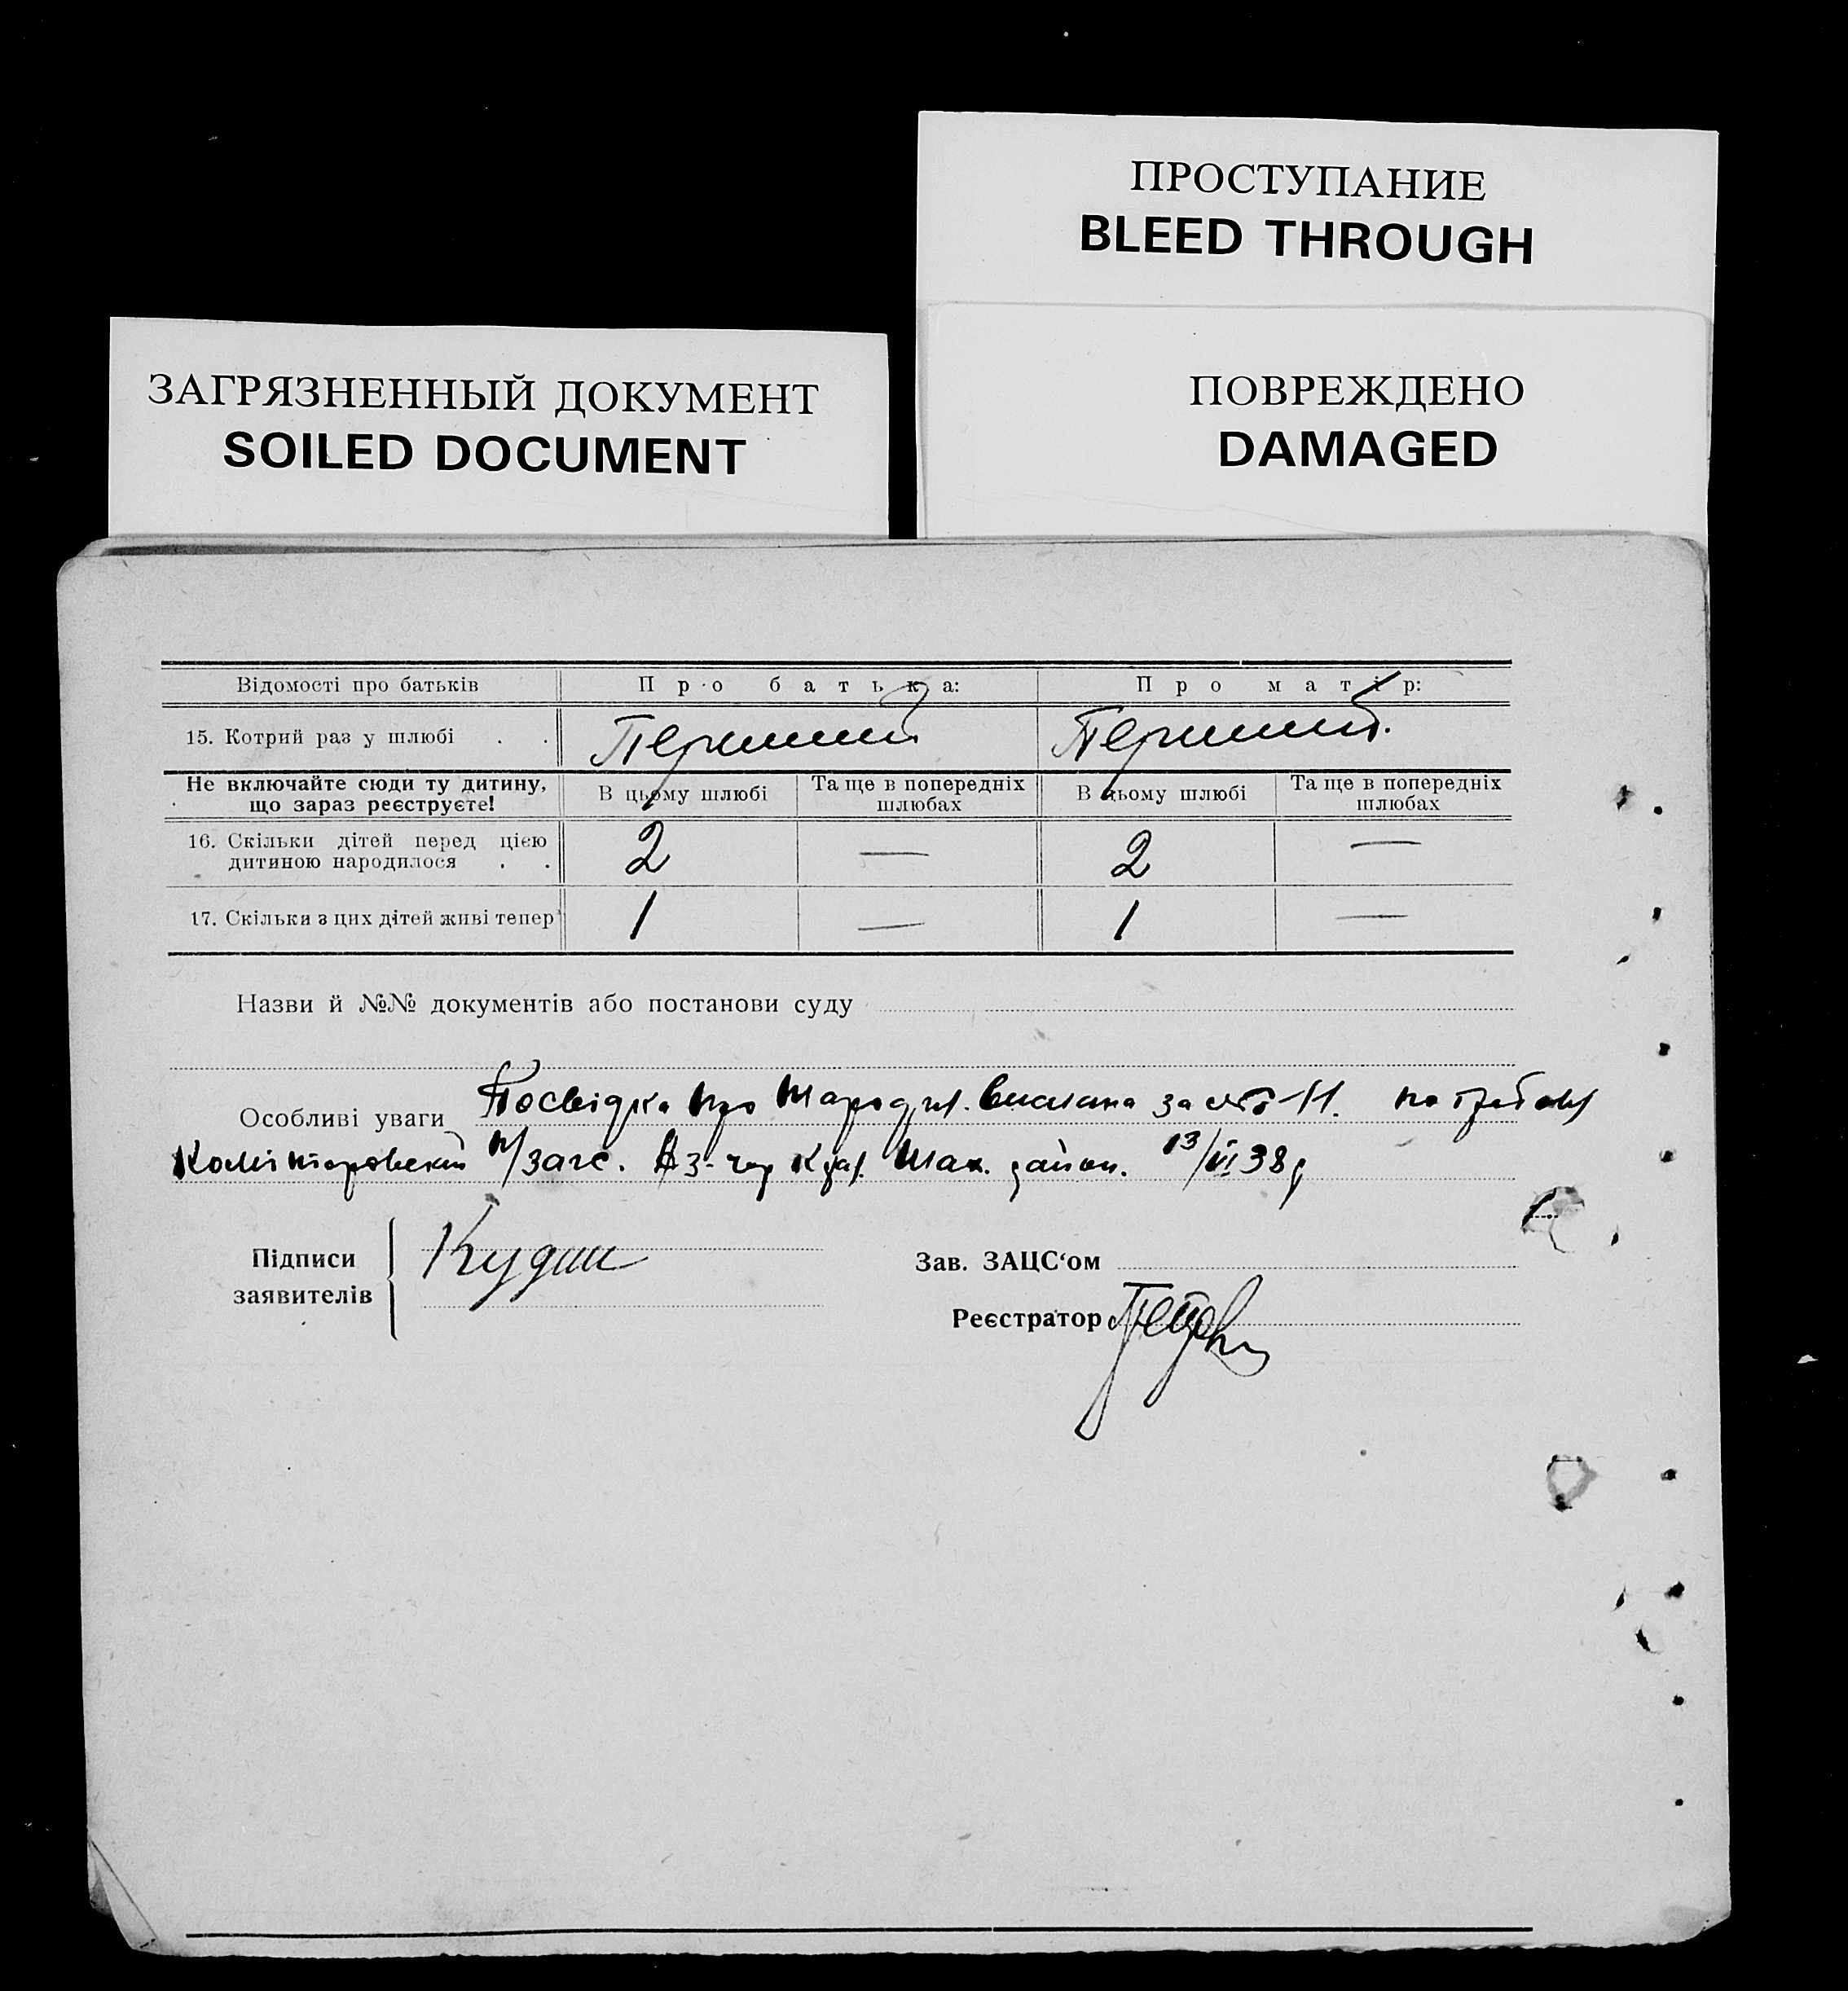 ПРОСТУПАНИЕ
BLEED THROUGH
ПОВРЕЖДЕНО
DAMAGED
ЗАГРЯЗНЕННЫЙ ДОКУМЕНТ
SOILED DOCUMENT
Відомості про батьків Про батька: Про матір:
15. Котрий раз у шлюбі . . Перший Перший.
Не включайте сюди ту дитину, що зараз реєструєте! В цьому шлюбі Та ще в попередніх шлюбах В цьому шлюбі Та ще в попередніх шлюбах
16. Скільки дітей перед цією дитиною народилося . . 2 — 2 —
17. Скільки з цих дітей живі тепер 1 — 1 —
Назви й №№ документів або постанови суду
Особливі уваги Посвідка про народж. за
н/загс. район. 13/VI 38р
Підписи заявителів Кудин
Зав. ЗАЦС‘ом
Реєстратор